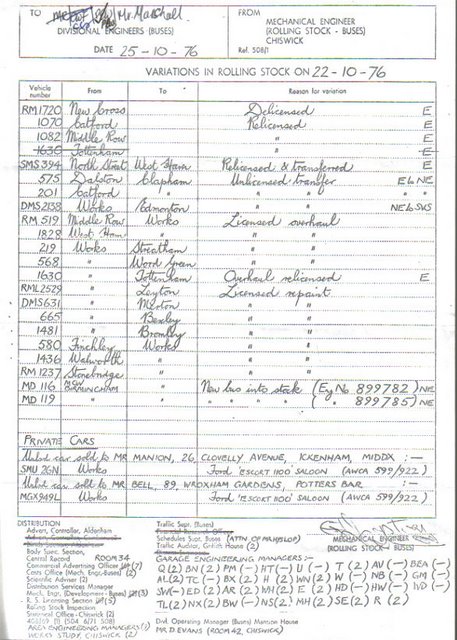 TO Mr Marshall
DIVISIONAL ENGINEERS (BUSES)
DATE 25-10-76
FROM
MECHANICAL ENGINEER
(ROLLING STOCK - BUSES)
CHISWICK
Ref. 508/1
VARIATIONS IN ROLLING STOCK ON 22-10-76
Vehicle number From To Reason for variation
RM1720 New Cross Delicensed E
1070 Catford Relicensed E
1082 Middle Row " E
1630 Tottenham " E
SMS394 North Street West Ham Relicensed & transferred E
575 Dalston Clapham Unlicensed transfer E6 NE
201 Catford " " " "
DMS2138 Works Edmonton NE6 SXS
RM 519 Middle Row Works Licensed overhaul
1828 West Ham " " "
219 Works Streatham " "
568 " Wood Green " "
1630 " Tottenham Overhaul relicensed E
RML2529 " Leyton Licensed repaint
DMS631 " Merton " "
665 " Bexley " "
1481 " Bromley " "
580 Finchley Works " "
1436 Walworth " " "
RM 1237 Stonebridge " " "
MD 116 MCW BIRMINGHAM New bus into stock (Eng No 899782) NE
MD 119 " " " " " ( " 899785) NE
PRIVATE CARS
car sold to MR MANION, 26, CLOVELLY AVENUE, ICKENHAM, MIDDX :—
SMU 2GN Works Ford 'ESCORT 1100' SALOON (AWCA 599/922)
car sold to MR BELL, 89, WROXHAM GARDENS, POTTERS BAR :—
MGX949L Works Ford 'ESCORT 1100' SALOON (AWCA 599/922)
DISTRIBUTION
Advert. Controller, Aldenham
Body Spec. Section,
Central Record ROOM 34
Commercial Advertising Officer (7)
Costs Office (Mech. Engr.-Buses) (2)
Scientific Adviser (2)
Distribution Services Manager
Mech. Engr. (Development - Buses) (3)
R. S. Licensing Section (5)
Rolling Stock Inspection
Statistical Officer (2)
AREA ENGINEERING MANAGERS
WORKS STUDY, CHISWICK (2)
Traffic Supt. (Buses)
Schedules Supt. (Buses)
Traffic Auditor, Griffith House (2)
MECHANICAL ENGINEER
(ROLLING STOCK - BUSES)
GARAGE ENGINEERING MANAGERS :-
Q(2) BN(2) PM(-) HT(-) U(-) T(2) AV(-) BEA(-)
AL(2) TC(-) BX(2) H(2) WN(2) W(-) NB(-) GM(-)
SW(-) ED(2) AR(2) WH(2) E(2) HD(-) HW(-) WD(-)
TL(2) NX(2) BW(-) NS(2) MH(2) SE(2) R(2)
Divl. Operating Manager (Buses) Manor House
MR D EVANS (ROOM 42, CHISWICK)